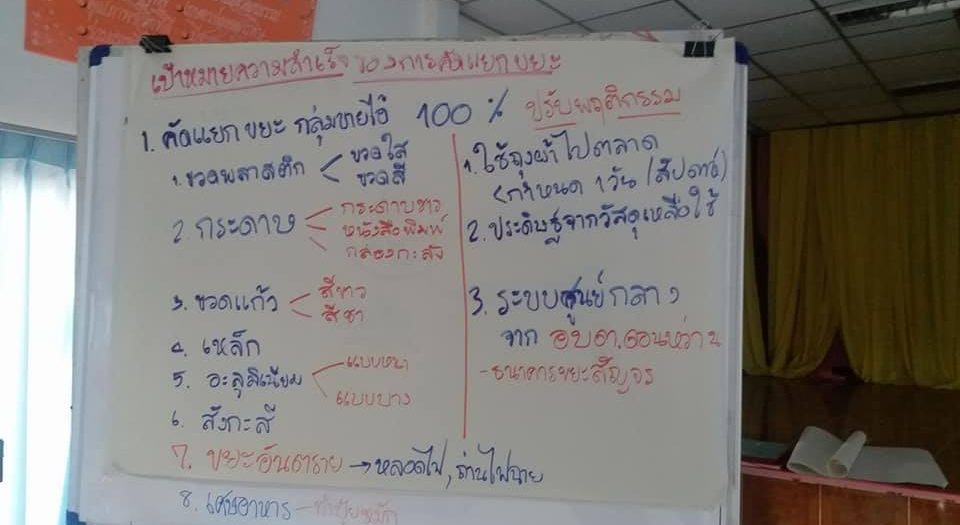 เป้าหมายความสำเร็จ ของการคัดแยกขยะ
1. คัดแยกขยะ กลุ่มขายได้ 100 %
1. ขวดพลาสติก < ขวดใส
ขวดสี
2. กระดาษ กระดาษขาว
หนังสือพิมพ์
กล่องกะลัง
3. ขวดแก้ว < สีขาว
สีชา
4. เหล็ก
5. อะลูมิเนียม < แบบหนา
แบบบาง
6. สังกะสี
7. ขยะอันตราย → หลอดไฟ, ถ่านไฟฉาย
8. เศษอาหาร – ทำปุ๋ยหมัก
ปรับพฤติกรรม
1. ใช้ถุงผ้าไปตลาด
กำหนด 1 วัน /สัปดาห์)
2. ประดิษฐ์จากวัสดุเหลือใช้
3. ระบบศูนย์กลาง
จาก อบต.ดอนหว่าน
- ธนาคารขยะสัญจร